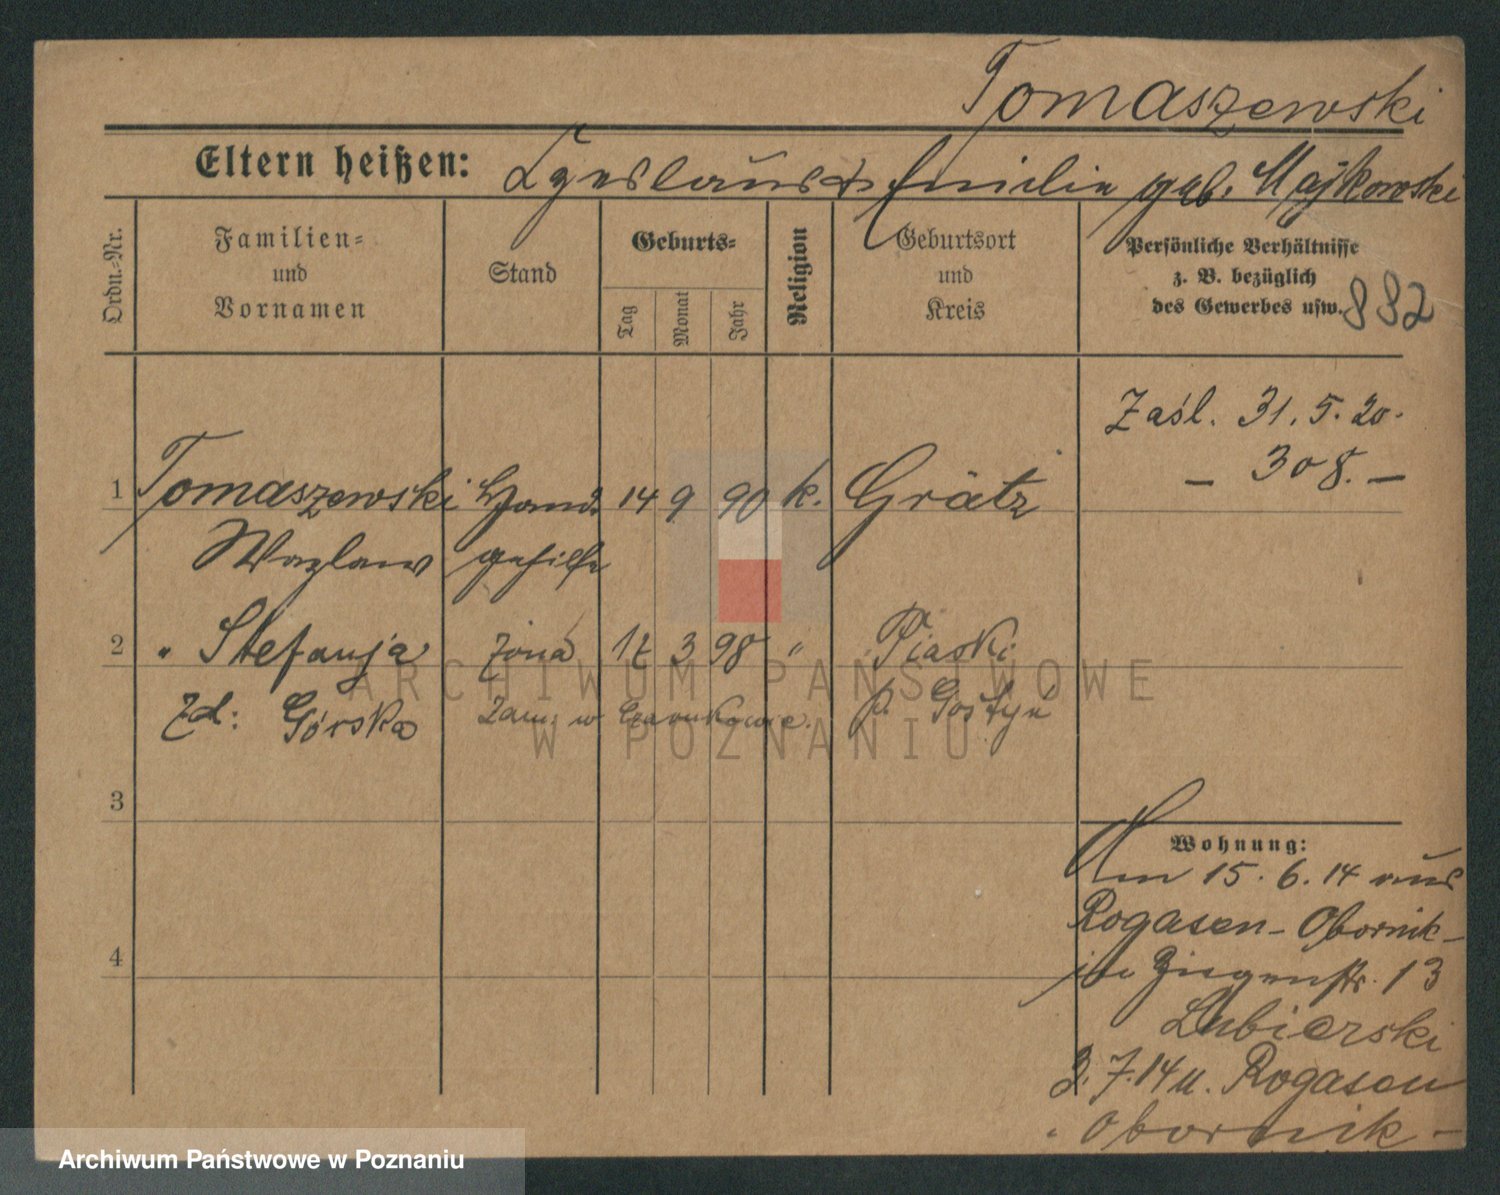 Tomaszewski
Eltern heißen: Czeslaus & Emilie geb. Majkowski
Ordn.-Nr.
Familien-
und
Vornamen
Stand
Geburts-
Tag
Monat
Jahr
Religion
Geburtsort
und
Kreis
Persönliche Verhältnisse
z. B. bezüglich
des Gewerbes usw.
882
Zaśl. 31. 5. 20.
– 308. –
1 Tomaszewski Hand. 14 9 90 k. Grätz
Wazlaw gehilfe
2 " Stefanja żona 3 98 " Piaski
Zd: Górska Zam. w Czarnkowie. p. Gostyń
3
4
Wohnung:
Am 15. 6. 14 aus
Rogasen - Obornik -
in Ziegenstr. 13
Lubierski
3. 7. 14 n. Rogasen
- Obornik -
ARCHIWUM PAŃSTWOWE
W POZNANIU
Archiwum Państwowe w Poznaniu